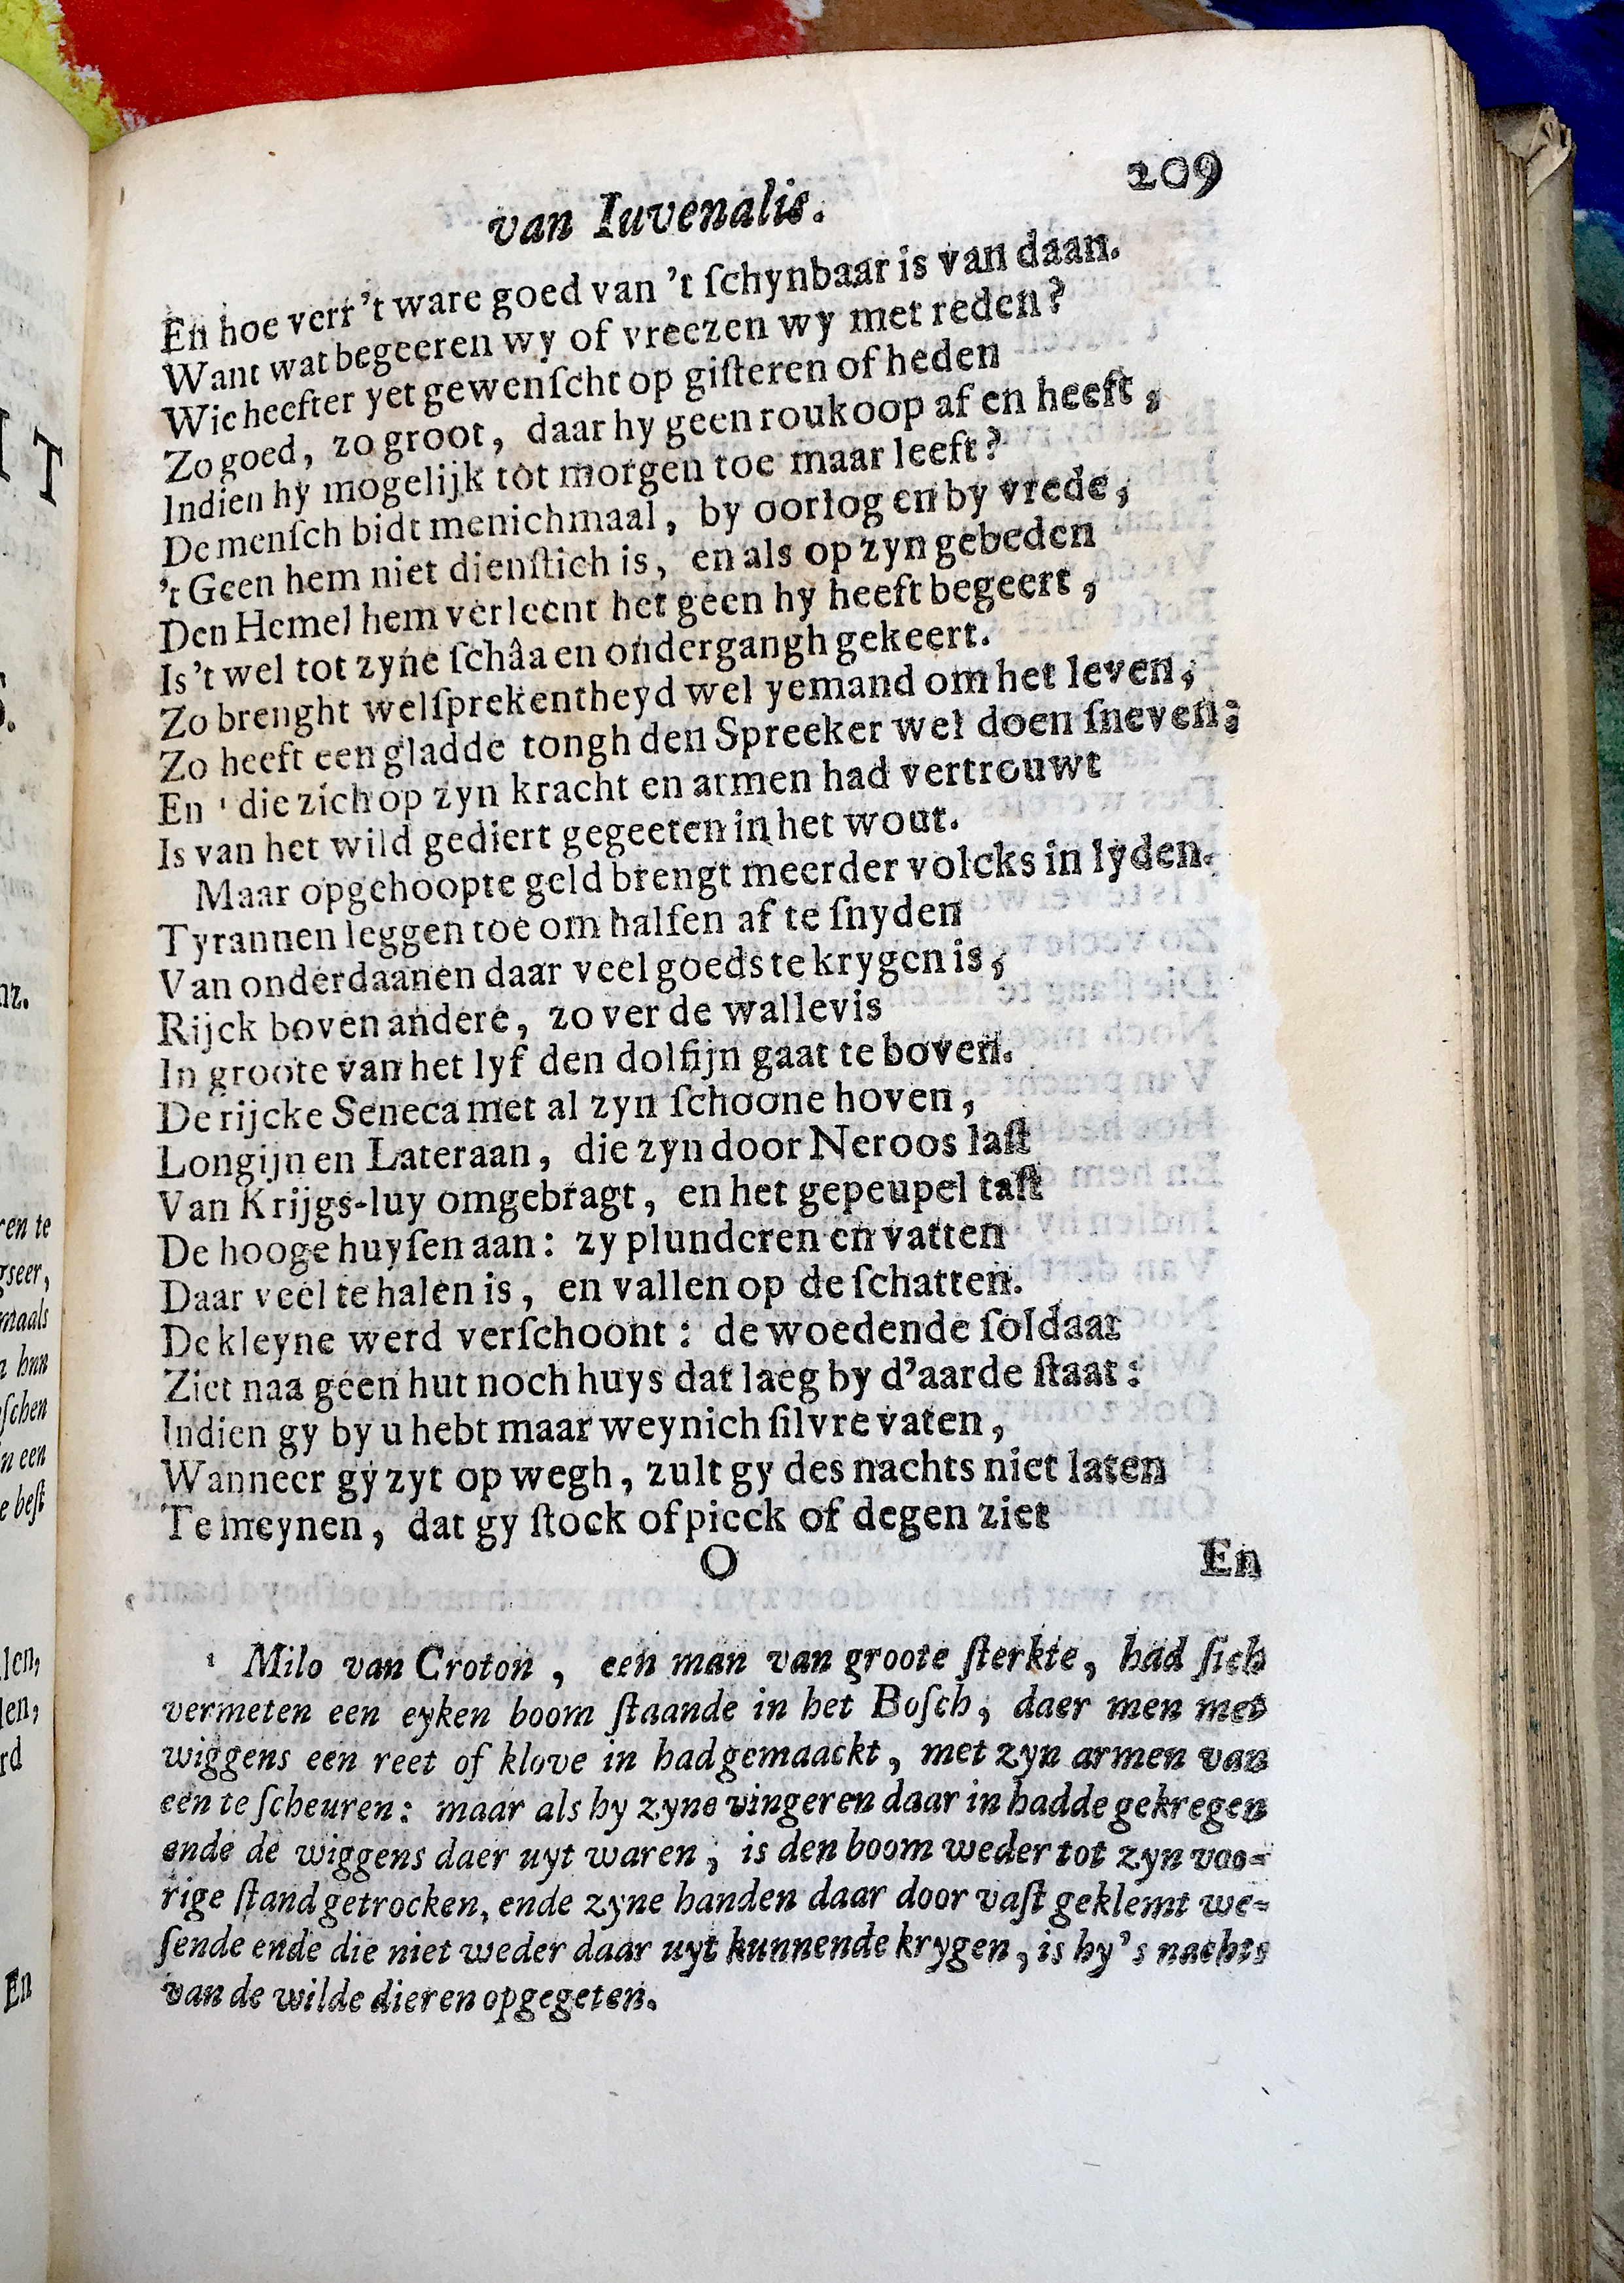 209
van Iuvenalis.
En hoe verr 't ware goed van 't ſchynbaar is van daan.
Want wat begeeren wy of vreezen wy met reden?
Wie heefter yet gewenſcht op giſteren of heden
Zo goed, zo groot, daar hy geen roukoop af en heeft,
Indien hy mogelijk tot morgen toe maar leeft?
De menſch bidt menichmaal, by oorlog en by vrede,
't Geen hem niet dienſtich is, en als op zyn gebeden
Den Hemel hem verleent het geen hy heeft begeert,
Is 't wel tot zyne ſchâa en ondergangh gekeert.
Zo brenght welſprekentheyd wel yemand om het leven,
Zo heeft een gladde tongh den Spreeker wel doen ſneven;
En ¹ die zich op zyn kracht en armen had vertrouwt
Is van het wild gediert gegeeten in het wout.
Maar opgehoopte geld brengt meerder volcks in lyden.
Tyrannen leggen toe om halſen af te ſnyden
Van onderdaanen daar veel goeds te krygen is,
Rijck boven andere, zo ver de wallevis
In groote van het lyf den dolfijn gaat te boven.
De rijcke Seneca met al zyn ſchoone hoven,
Longijn en Lateraan, die zyn door Neroos laſt
Van Krijgs-luy omgebragt, en het gepeupel taſt
De hooge huyſen aan: zy plunderen en vatten
Daar veel te halen is, en vallen op de ſchatten.
De kleyne werd verſchoont: de woedende ſoldaat
Ziet naa geen hut noch huys dat laeg by d'aarde ſtaat:
Indien gy by u hebt maar weynich ſilvre vaten,
Wanneer gy zyt op wegh, zult gy des nachts niet laten
Te meynen, dat gy ſtock of pieck of degen ziet
O En
¹ Milo van Croton, een man van groote ſterkte, had ſich
vermeten een eyken boom ſtaande in het Boſch, daer men met
wiggens een reet of klove in had gemaackt, met zyn armen van
een te ſcheuren: maar als hy zyne vingeren daar in hadde gekregen
ende de wiggens daer uyt waren, is den boom weder tot zyn voo-
rige ſtand getrocken, ende zyne handen daar door vaſt geklemt we-
ſende ende die niet weder daar uyt kunnende krygen, is hy 's nachts
van de wilde dieren opgegeten.